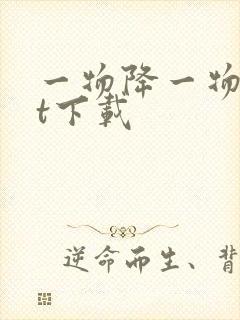 一物降一物
t下載
逆命而生、背